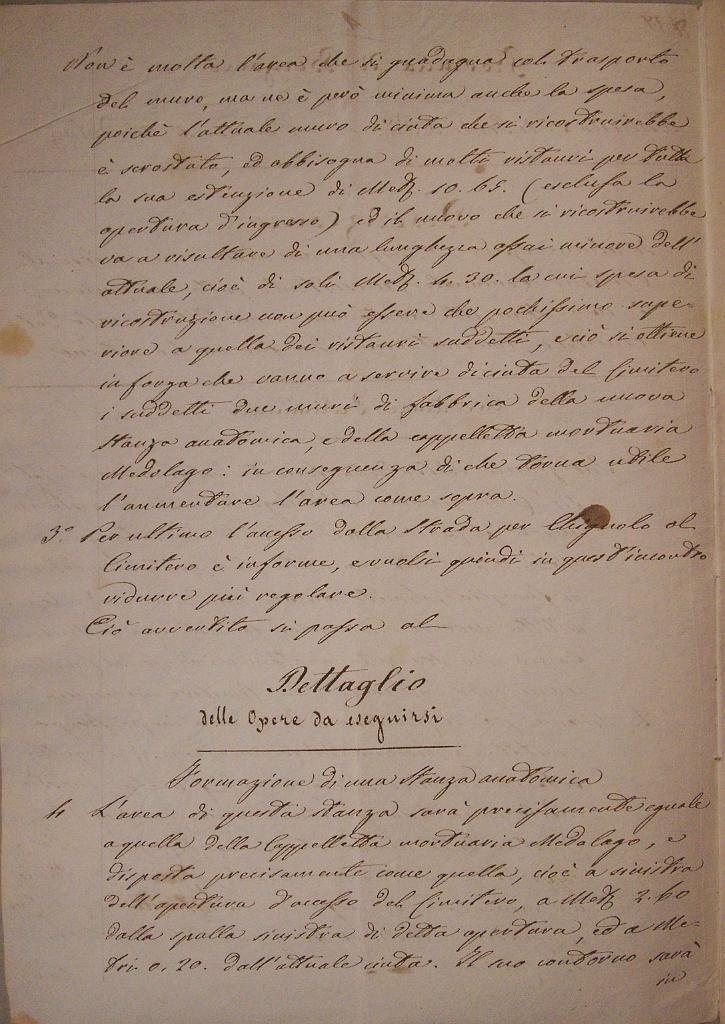 Non è molta l'area che si guadagna col trasporto
del muro, ma ne è però minima anche la spesa,
poichè l'attuale muro di cinta che si ricostruirebbe
è scrostato, ed abbisogna di molti ristauri per tutta
la sua estenzione di Met. 10. 65. (esclusa la
apertura d'ingresso) ed il nuovo che si ricostruirebbe
va a risultare di una lunghezza assai minore dell'
attuale, cioè di soli Met. 4. 30. la cui spesa di
ricostruzione non può essere che pochissimo supe-
riore a quella dei ristauri suddetti, e ciò si ottiene
in forza che vanno a servire di cinta del Cimitero
i suddetti due muri di fabbrica della nuova
Stanza anatomica, e della cappelletta mortuaria
Medolago: in conseguenza di che torna utile
l'aumentare l'area come sopra.
3.° Per ultimo l'accesso dalla Strada per Chignolo al
Cimitero è informe, e vuolsi quindi in quest'incontro
ridurre più regolare.
Ciò avvertito si passa al
Dettaglio
delle Opere da eseguirsi
Formazione di una Stanza anatomica
4 L'area di questa stanza sarà precisamente eguale
a quella della Cappelletta mortuaria Medolago, e
disposta precisamente come quella, cioè a sinistra
dell'apertura d'accesso del Cimitero, a Met. 2. 60
dalla spalla sinistra di detta apertura, ed a Me-
tri. 0. 20. dall'attuale cinta. Il suo contorno sarà
in